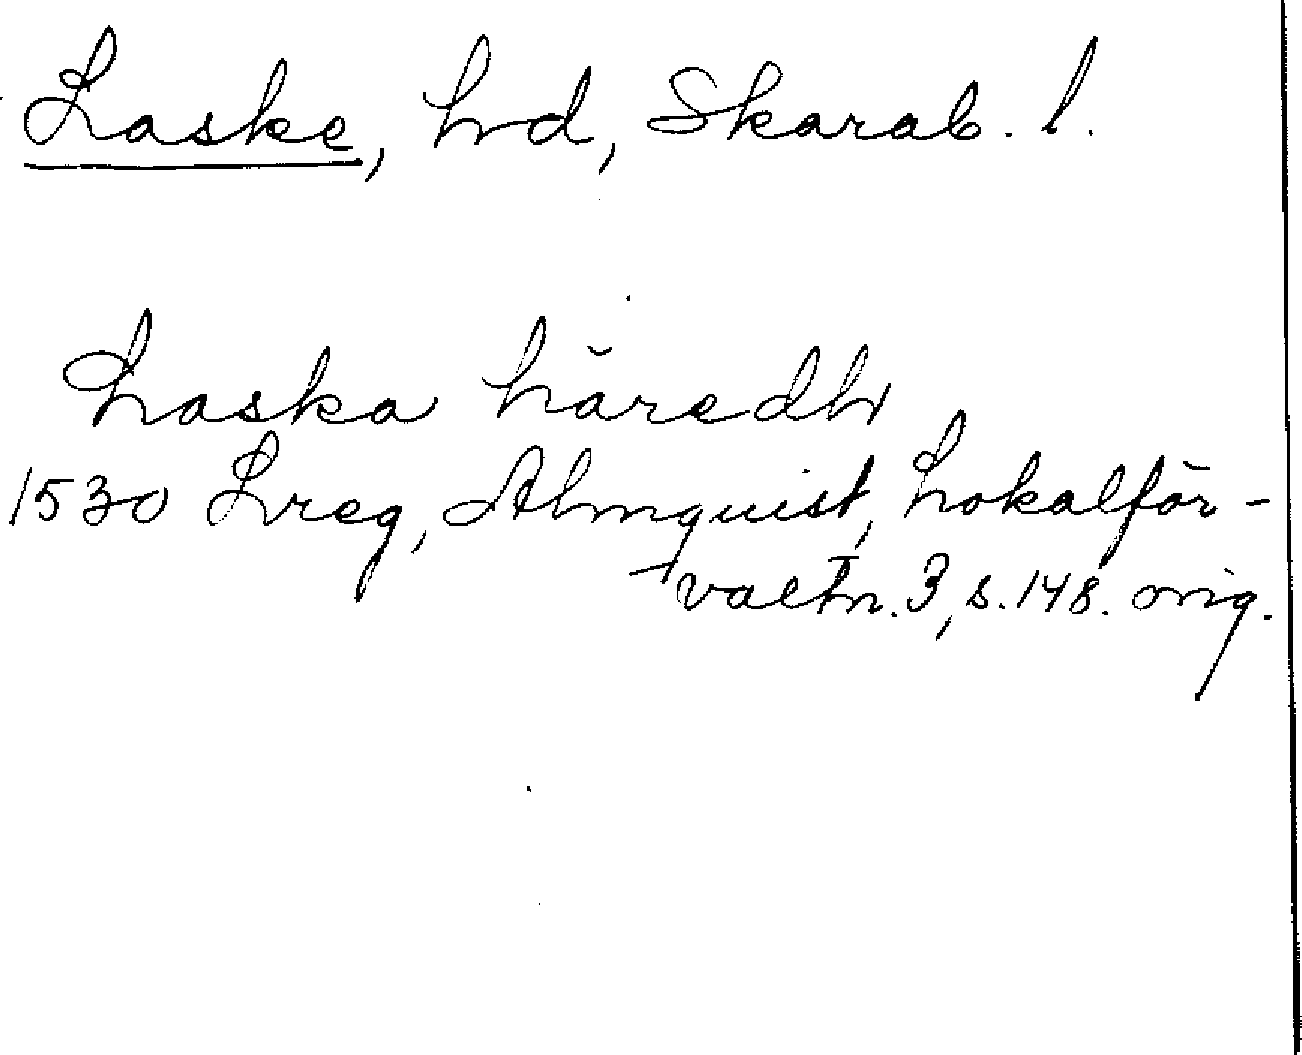 Laske, hrd, Skarab. l.
Laska häredh
1530 Lreg, Almquist, Lokalför-
valtn. 3, s. 148. orig.